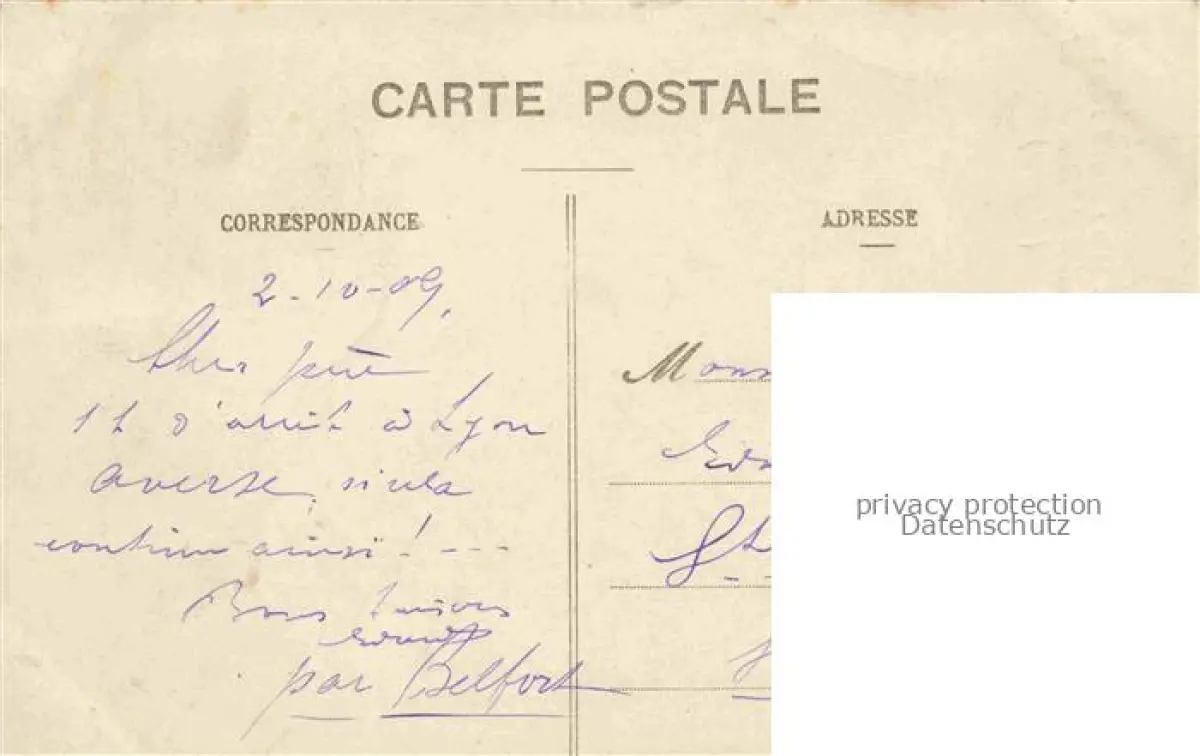 CARTE POSTALE
CORRESPONDANCE
ADRESSE
2-10-09.
Cher père
1 h d'arrêt à Lyon
averse, si cela
continue ainsi! ---
Bons baisers
par Belfort
Mons
St
privacy protection
Datenschutz